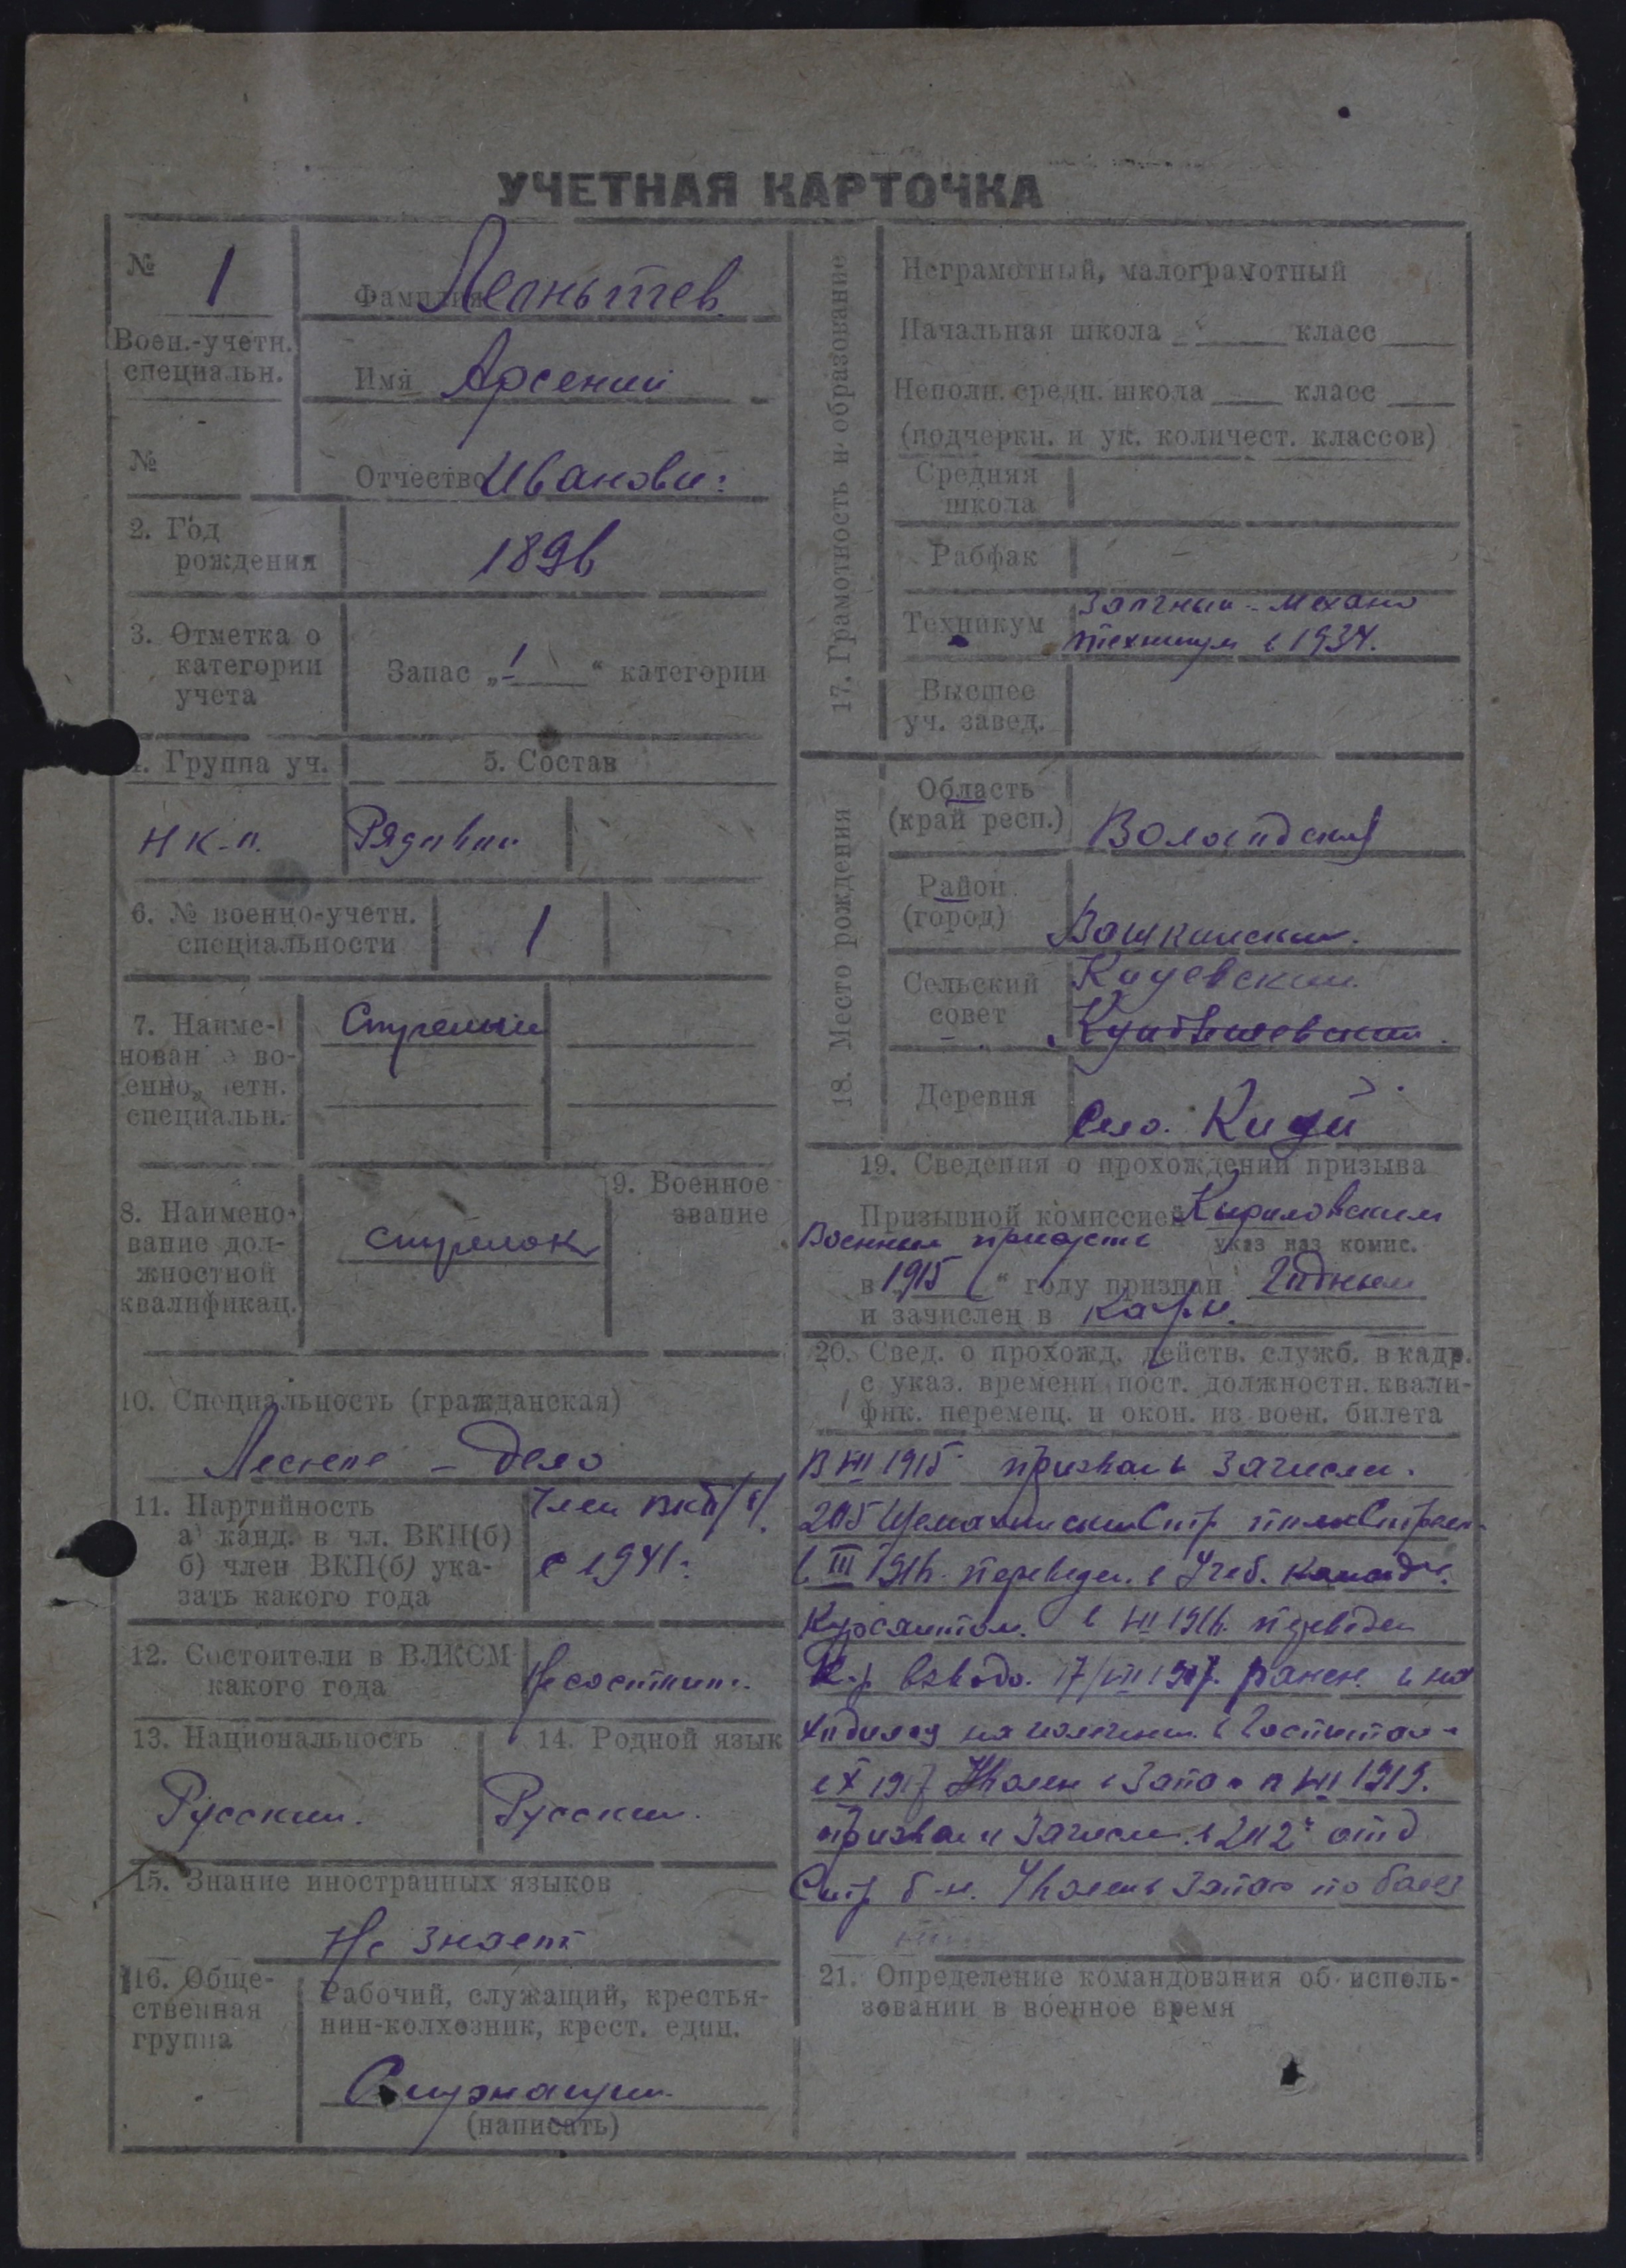 УЧЕТНАЯ КАРТОЧКА
№ 1
Воен.-учетн.
специальн.
№
Фамилия
Имя Арсений
Отчество Иванович
2. Год
рождения
1896
3. Отметка о
категории
учета
Запас „1“ категории
4. Группа уч.
5. Состав
Рядовой
6. № военно-учетн.
специальности
1
7. Наиме-
нован е во-
енно етн.
специальн.
8. Наимено-
вание дол-
жностной
квалификац.
стрелок
9. Военное
звание
10. Специальность (гражданская)
Лесное - дело
11. Партийность
а) канд. в чл. ВКП(б)
б) член ВКП(б) ука-
зать какого года
Член ВКП/б/
с 1941г
12. Состоители в ВЛКСМ
какого года
Не состоит
13. Национальность
Русский.
14. Родной язык
Русский.
15. Знание иностранных языков
Не знает
16. Обще-
ственная
группа
Рабочий, служащий, крестья-
нин-колхозник, крест. един.
Служащий
(написать)
17. Грамотность и образование
Неграмотный, малограмотный
Начальная школа класс
Неполн. средн. школа класс
(подчеркн. и ук. количест. классов)
Средняя
школа
Рабфак -
Техникум
техникум в 1934.
Высшее
уч. завед.
18. Место рождения
Область
(край респ.)
Вологодская
Район
(город)
Вашкинский.
Сельский
совет
Деревня
Село
19. Сведения о прохождении призыва
Призывной комиссией Кириловским
Военным
указ наз комис.
в 1915 “ году признан Годным
и зачислен в
20. Свед. о прохожд. действ. служб. в кадр.
с указ. времени пост. должностн. квали-
фик. перемещ. и окон. из воен. билета
В VIII 1915 призван и зачислен
205 Шемахинский Стр полк
в III 1916 переведен в Учеб. команду
Курсантом. в 1916. переведен
взвода. 17/ 1917. ранен. и на
ходился на излечении в Госпитале
в X 1917 Уволен в Запас в 1919.
призван и Зачислен в 202 отд
Стр б-н. Уволен в Запас по болез
21. Определение командования об исполь-
зовании в военное время